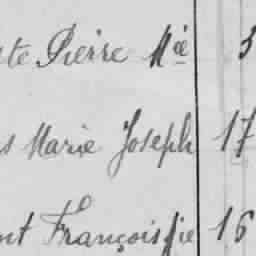 te Pierre Mie 3
s Marie Joseph 17
nt François fie 16